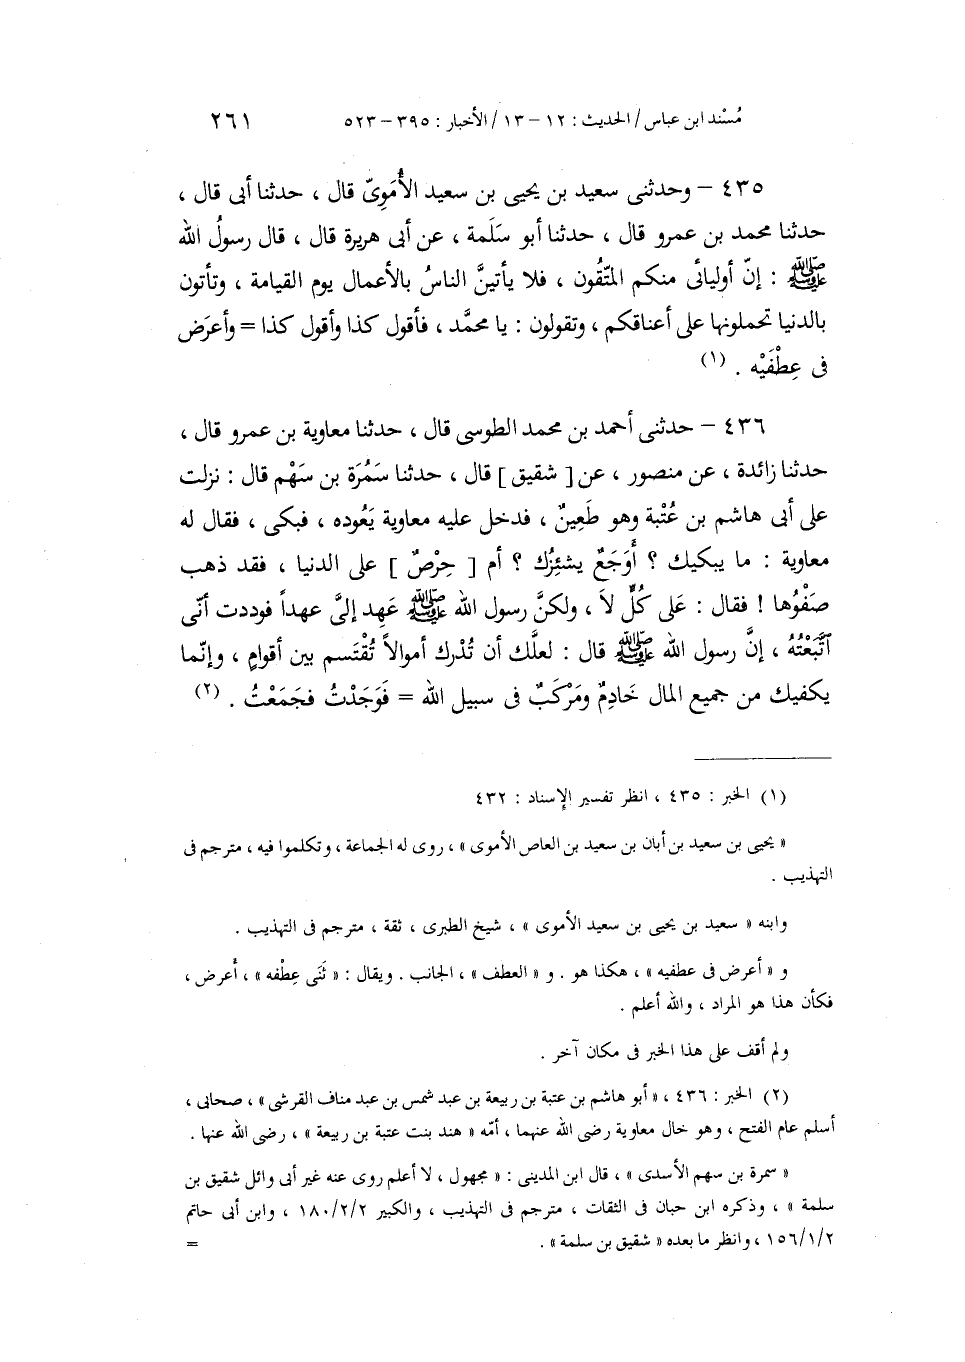 مُسْند ابن عباس / الحديث : ١٢ – ١٣ / الأخبار : ٣٩٥ – ٥٢٣ ٢٦١
٤٣٥ – وحدثنى سعيد بن يحيى بن سعيد الأُمَوِىّ قال ، حدثنا أبى قال ،
حدثنا محمد بن عمرو قال ، حدثنا أبو سَلَمة ، عن أبى هريرة قال ، قال رسولُ الله
ﷺ : إنّ أوليائى منكم المتّقُون ، فلا يأتينَّ الناسُ بالأعمال يوم القيامة ، وتأتون
بالدنيا تحملونها على أعناقكم ، وتقولون : يا محمَّد ، فأقول كذا وأقول كذا = وأعرَض
فى عِطْفَيْه . (١)
٤٣٦ – حدثنى أحمد بن محمد الطوسى قال ، حدثنا معاوية بن عمرو قال ،
حدثنا زائدة ، عن منصور ، عن [ شقيق ] قال ، حدثنا سَمُرَة بن سَهْم قال : نزلت
على أبى هاشم بن عُتْبة وهو طَعِينٌ ، فدخل عليه معاوية يَعُوده ، فبكى ، فقال له
معاوية : ما يبكيك ؟ أَوَجَعٌ يشئِزُك ؟ أم [ حِرْصٌ ] على الدنيا ، فقد ذهب
صَفْوُها ! فقال : عَلى كُلٍّ لاَ ، ولكنَّ رسول الله ﷺ عَهِد إلىَّ عهداً فوددت أنّى
ٱتَّبَعْتُهُ ، إنَّ رسول الله ﷺ قال : لعلَّك أن تُدْرك أموالاً تُقْتَسم بين أقوامٍ ، وإنّما
يكفيك من جميع المال خَادِمٌ ومَرْكَبٌ فى سبيل الله = فَوَجَدْتُ فجَمَعْتُ . (٢)
(١) الخبر : ٤٣٥ ، انظر تفسير الإسناد : ٤٣٢
« يحيى بن سعيد بن أبان بن سعيد بن العاص الأموى » ، روى له الجماعة ، وتكلموا فيه ، مترجم فى
التهذيب .
وابنه « سعيد بن يحيى بن سعيد الأموى » ، شيخ الطبرى ، ثقة ، مترجم فى التهذيب .
و « أعرض فى عطفيه » ، هكذا هو . و « العطف » ، الجانب . ويقال : « ثَنَى عِطْفه » ، أعرض ،
فكأن هذا هو المراد ، والله أعلم .
ولم أقف على هذا الخبر فى مكان آخر .
(٢) الخبر : ٤٣٦ ، « أبو هاشم بن عتبة بن ربيعة بن عبد شمس بن عبد مناف القرشى » ، صحابى ،
أسلم عام الفتح ، وهو خال معاوية رضى الله عنهما ، أمّه « هند بنت عتبة بن ربيعة » ، رضى الله عنها .
« سمرة بن سهم الأسدى » ، قال ابن المدينى : « مجهول ، لا أعلم روى عنه غير أبى وائل شقيق بن
سلمة » ، وذكره ابن حبان فى الثقات ، مترجم فى التهذيب ، والكبير ١٨٠/٢/٢ ، وابن أبى حاتم
١٥٦/١/٢ ، وانظر ما بعده « شقيق بن سلمة » . =